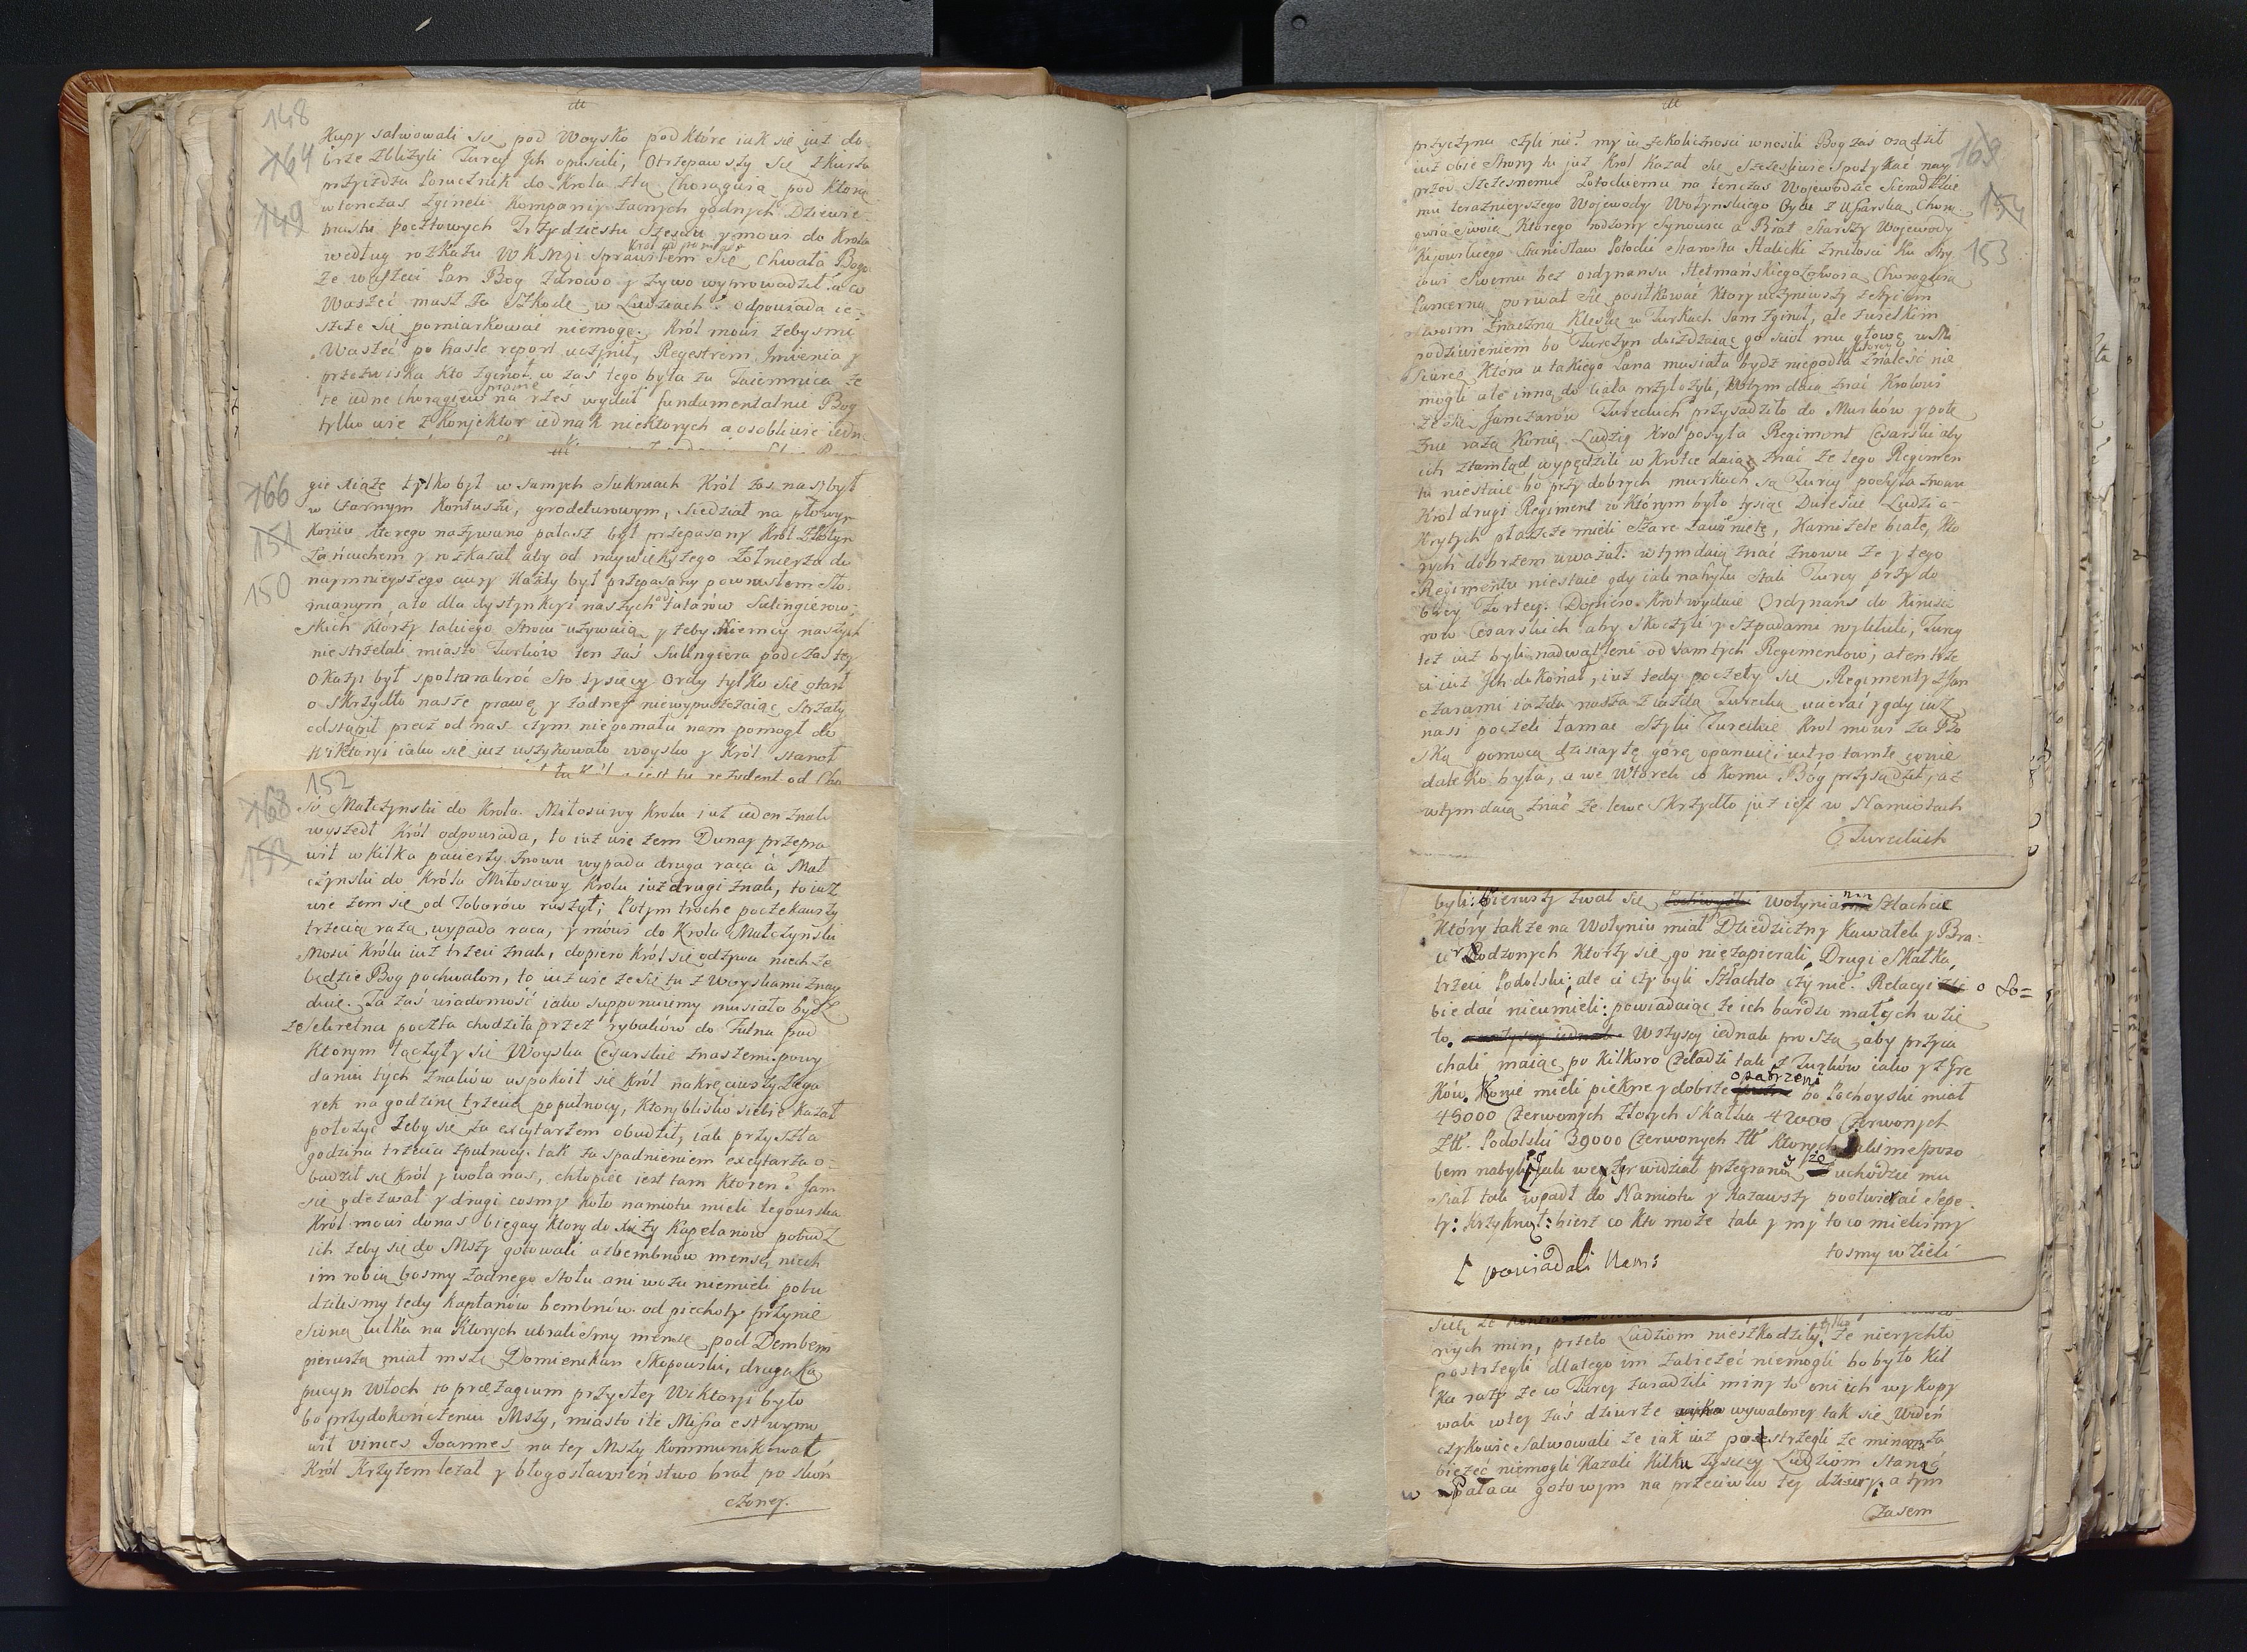 148
164
149
kupy salwowali się pod Woysko pod które iak się iuż do-
brze zbliżyli Turcy Ich opuscili, Otrzepawszy się z kurzu
przyieżdza Porucznik do Krola z tą Chorągwią pod ktorą
wtenczas zgineli kompanij zacnych godnych Dziewie-
tnastu pocztowych Trzydziestu Sześciu y mowi do Krola
według rozkazu WKMsji sprawiłem się Chwała Bogu
Krol odpowie
że Waszeci Pan Bog zdrowo y żywo wyprowadził a co
Waszeć masz za Szkodę w Ludziach? Odpowiada ie-
szcze się pomiarkować niemogę. Król mowi żebysmi
Waszeć po hasle report uczynił, Regestrem Imienia y
przezwiska kto zginoł, w zaś tego była za Taiemnica że
te iedne chorągiew na rzeź wydał fundamentalnie Bog
tylko wie z Konjektor iednak niektorych a osobliwie iedn
166
151
150
gie xiąże tylko był w samych Sukniach Król zas nasz był
w czarnym Kontuszu, grodeturowym, siedział na płowym
koniu ktorego nazywano pałasz był przepasany Król Złotym
Łańcuchem y rozkazał aby od naywiększego Żołnierza do
naymnieyszego aury każdy był przepasany powrosłem sło-
mianym, a to dla dystynkcyi naszych od tatarów Sulingierow-
skich ktorzy takiego Stroiu używaią y żeby Niemcy naszych
nie strzelali miasto Turkow ten zaś Sulingiera podczas tey
okazyi był społtarakroć sto tysięcy ordy tylko się otarł
o skrzydło nasze prawe y żadney niewypuszczaiąc Strzały
odstąpił precz od nas czym niepomału nam pomogł do
Wiktoryi iako się iuż uszykowało woysko y Król stanoł
152
168
153
Matczynski do Krola. Miłosciwy Krolu iuż ieden znak
wyszedł Król odpowiada, to iuż wie żem Dunay przepra
wił w kilka pacierzy znowu wypada druga raca à Mat
czynski do Króla Miłosciwy Krolu iuż drugi znak, to iuż
wie żem się od Taborów ruszył; Potym troche poczekawszy
trzecią razą wypada raca, y mówi do Krola Matczynski
Mosci Królu iuż trzeci znak, dopiero Król się odzywa niech że
będzie Bog pochwalon, to iuż wie że się tu z Woyskami znay
duie. Ta zaś wiadomość iako supponuiemy musiało bydź
że Sekretna poczta chodziła przez rybaków do Tulna pod
ktorym łączyły się Woyska Cesarskie z naszemi. po wy
daniu tych znaków uspokoił się król nakręciwszy Zega
rek na godzinę trzecią po pułnocy, ktory blisko siebie kazał
położyć żeby się za excytarzem obudził, iak przyszła
godzina trzecia z pułnocy. tak za spadnieniem excytarza o-
budził się Król y woła nas, chłopiec iest tam ktoren? Jam
się odezwał y drugi cosmy koło namiotu mieli legowiska
Król mowi do nas biegay ktory do xięży Kapelanow pobudź
ich żeby się do Mszy gotowali a z bembnów mensę niech
im robią bosmy żadnego Stołu ani wozu niemieli pobu
dzilismy tedy Kapłanów bembnów od piechoty przynie
siono kilka na ktorych ubralismy mensę pod Dembem
pierwszą miał mszę Domienikan Skopowski, drugą Ka
pucyn Włoch to præsagium przyszłey Wiktoryi było
bo przy dokończeniu Mszy, miasto ite Missa est wymo
wił vinces Joannes na tey Mszy kommunikował
Król Krzyżem leżał y błogosławieństwo brał po skoń
czoney.
169
154
153
przyczyna czyli nie? my iu z okoliczności wnosili Bog zaś osądził
iuż obie Strony tu już Krol kazał się szczesliwie spotykać nay
przod Szczesnemu Potockiemu na tenczas Wojewodzie Sieradzkie
mu teraznieyszego Wojewody Wołynskiego Oycu z Usarską Chorą
gwią Swoią Którego rodzony Synowiec a Brat Starszy Wojewody
Kijowskiego Stanisław Potocki Starosta Halicki z miłosci ku Stry
iowi Swemu bez ordynansu Hetmańskiego z swoią Chorągwią
Pancerną porwał się posiłkować ktory uczyniwszy
znaczną klęskę w Turkach sam zginoł, ale z wielkim
podziwieniem bo Turczyn doieżdzaiąc go sciął mu głowę w Mi
siurce Która u takiego Pana musiała bydź niepodła ktorey znaleść nie
mogli ale inną do ciała przyłożyli, w tym daią znać Krolowi
że się Janczarów Tureckich przysadziło do Murków y potę
żnie rażą konie, Ludzi Krol posyła Regiment Cesarski aby
ich ztamtąd wypędzili w krotce daią znać że tego Regimen
tu niestaie bo przy dobrych murkach są Turcy posyła znowu
Krol drugi Regiment w którym było tysiąc Dwiescie Ludzi a
krytych płaszcze mieli szare Ław niebię, Kamizele białe, kto
rych dobrzem uważał: w tym daią znać znowu że y tego
Regimentu niestaie gdy iak na hyku stali Turcy przy do
brey Fortecy. Dopiero Krol wydaie Ordynans do Kirisse
row Cesarskich aby skoczyli y szpadami wykłuli, Turcy
też iuż byli nadwątleni od tamtych Regimentow, a ten trze
ci iuż Ich dokonał, iuż tedy poczeły się Regimenty z Jan
czarami iazda nasza z iazdą Turecką ucierać y gdy iuż
nasi poczeli łamać Szyki Tureckie Krol mowi za Bo
ską pomocą dzisiay tę górę opanuię i iutro tamte gonie
daleko była, a we Wtorek co komu Bóg przysądził, aż
w tym daią znać że lewe skrzydło już iest w Namiotach
Tureckich
byli: Pierwszy zwał się Wołynianin Szlachcic
Który także na Wołyniu miał Dziedziczny kawałek y Bra-
ci Rodzonych ktorzy się go niezapierali, Drugi Skałka,
trzeci Podolski; ale ci czy byli Szlachta czy nie? Relacyi o So=
bie dać nieumieli: powiadaiąc że ich bardzo małych wzię
to. Wszyscy iednak proszą, aby przyie
chali maiąc po kilkoro Czeladzi tak z Turków iako y z Gre
ków. Konie mieli piękne y dobrze opatrzeni bo Pochoyski miał
45000 Czerwonych Złotych Skałka 42000 Czerwonych
Złł. Podolski 39000 Czerwonych Złł ktorych iakim sposo
bem nabyli iak wezyr widział przegraną y że uchodzić mu
siał tak wpadł do Namiotu y kazawszy pootwierać Sepe-
ty: krzyknął: bierz co kto może tak y my to co mielismy
tosmy wzieli
powiadali Nam:
nych min, przeto Ludziom nieszkodziły, tylko że nierychło
postrzegli dlatego im zabieżeć niemogli bo było kil
ka razy że co Turcy zasadzili miny to oni ich wykopy
wali w tey zaś dziurze wywaloney tak się Wiedeń
czykowie Salwowali że iak iuż postrzegli że minom za
bieżeć niemogli kazali kilku tysięcy Ludziom stanąć
w Pałacu gotowym na przeciwko tey dziury, a tym
czasem